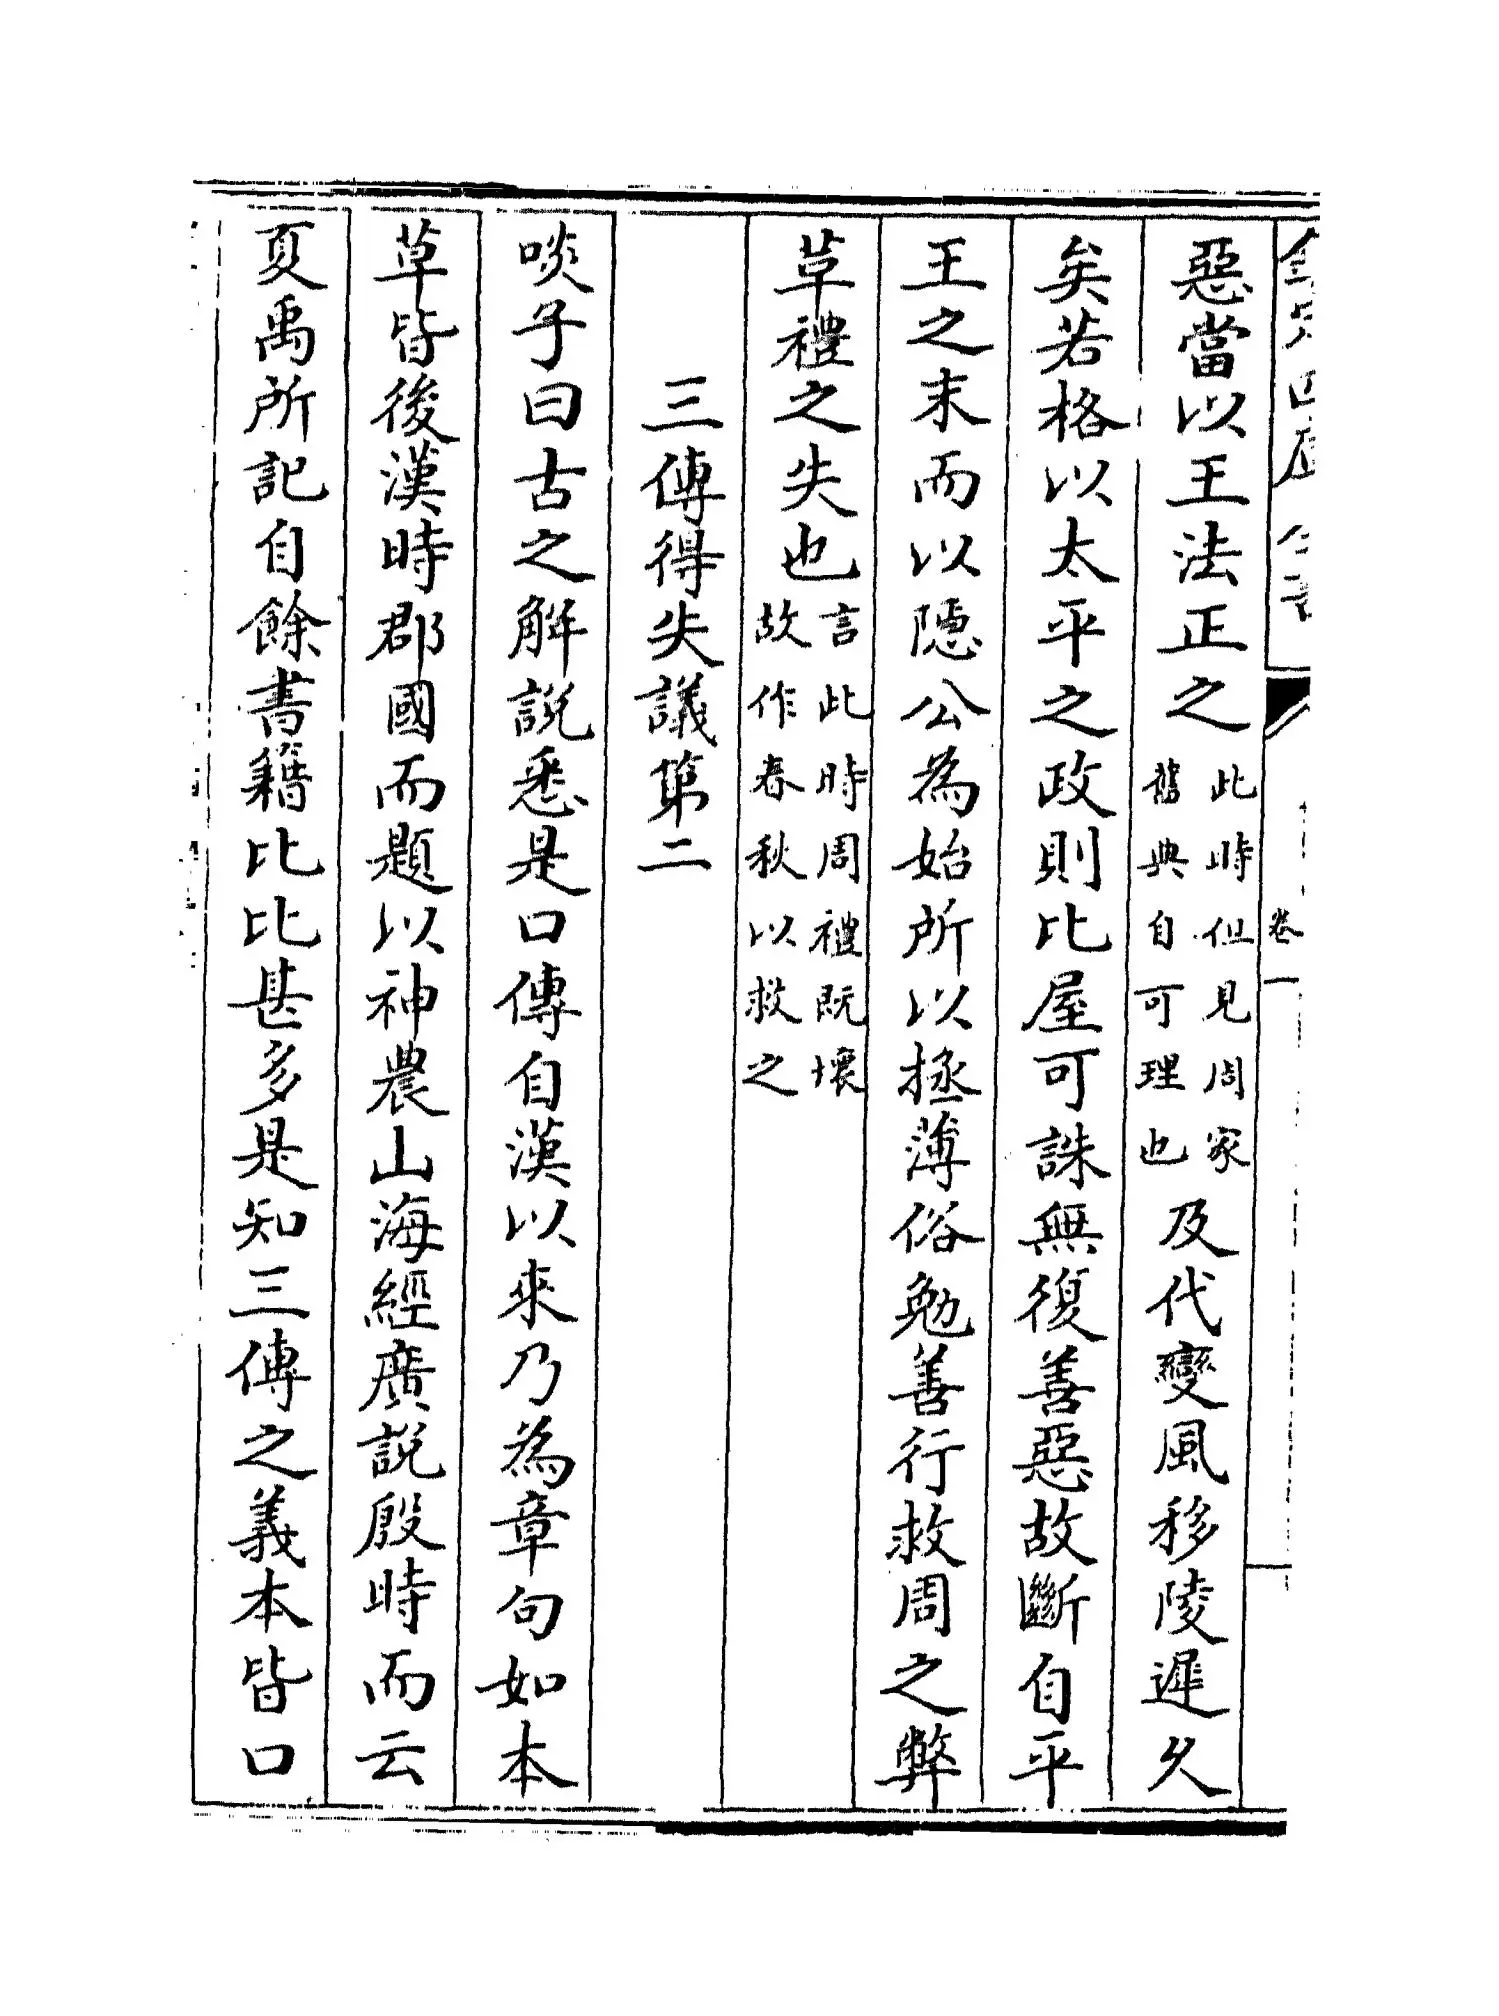 欽定四庫全書
卷一
惡當以王法正之此時但見周家舊典自可理也及代變風移陵遲久
矣若格以太平之政則比屋可誅無復善惡故斷自平
王之末而以隱公為始所以拯薄俗勉善行救周之弊
革禮之失也言此時周禮既壞故作春秋以救之
三傳得失議第二
啖子曰古之解說悉是口傳自漢以來乃為章句如本
草皆後漢時郡國而題以神農山海經廣說殷時而云
夏禹所記自餘書籍比比甚多是知三傳之義本皆口